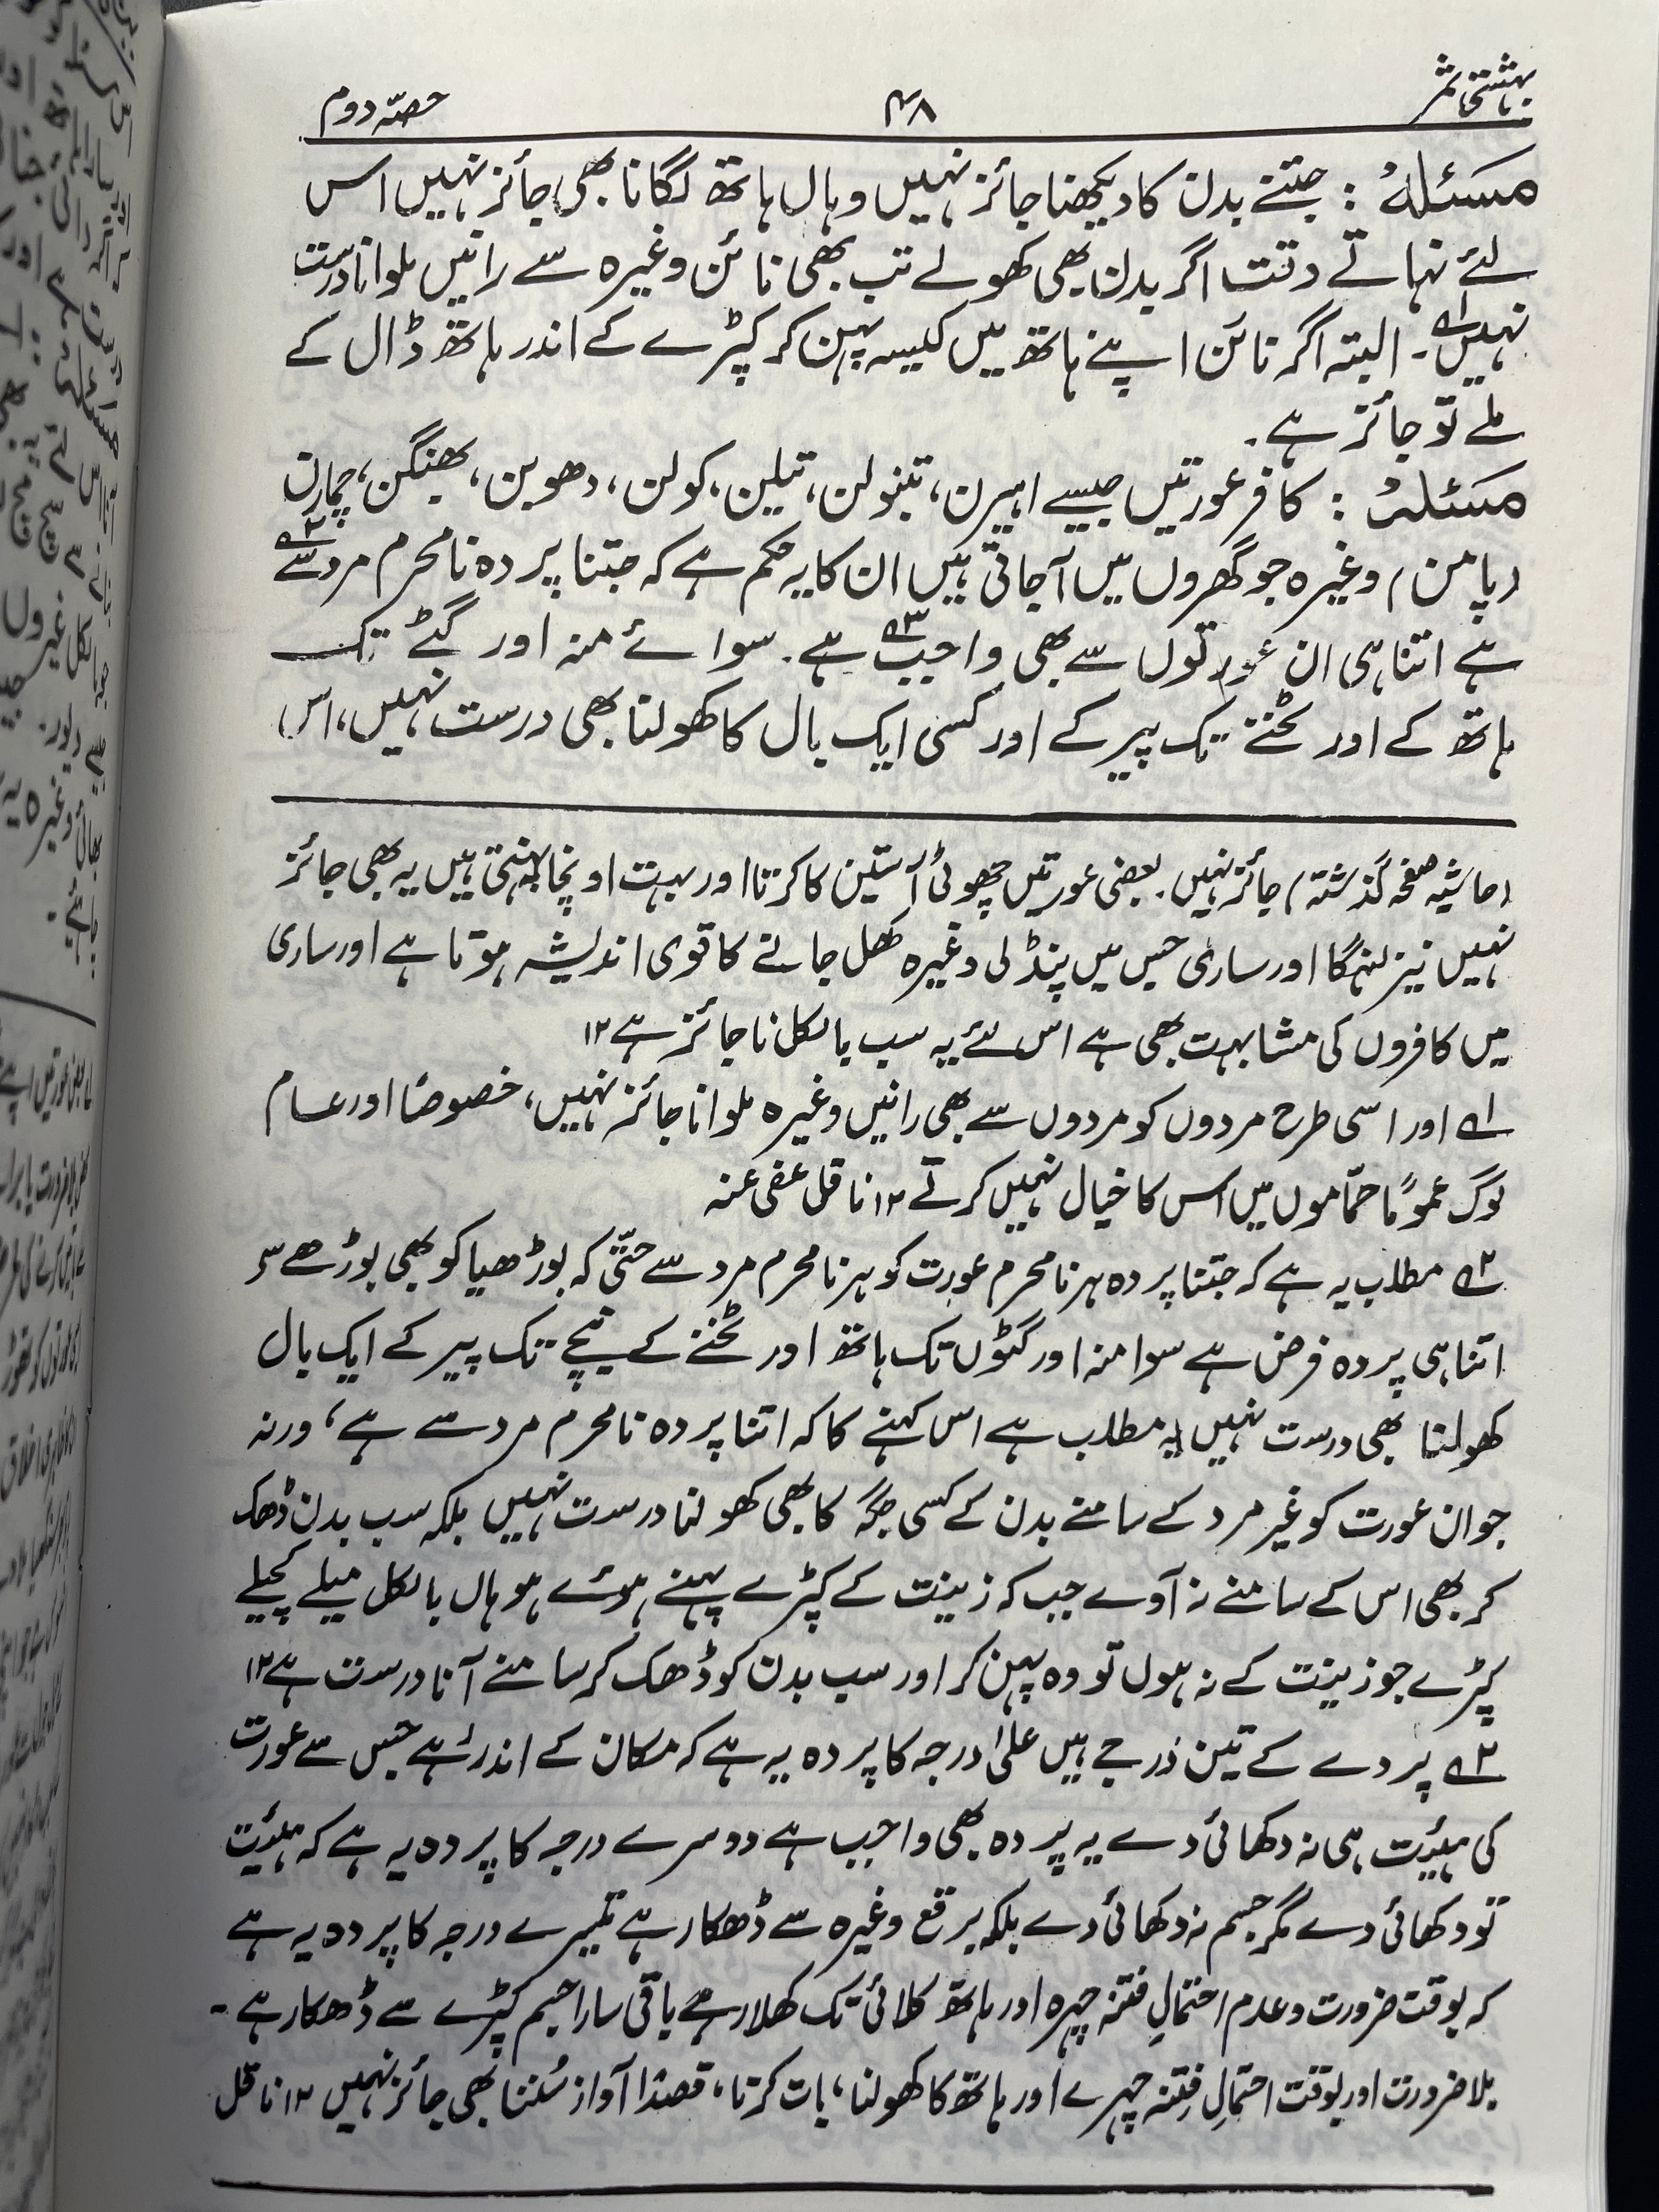 بہشتی ثمر ۴۸ حصّہ دوم
مسئلہ : جتنے بدن کا دیکھنا جائز نہیں وہاں ہاتھ لگانا بھی جائز نہیں اس
لئے نہاتے وقت اگر بدن بھی کھولے تب بھی نائن وغیرہ سے رانیں ملوانا درست
نہیں۱۔ البتہ اگر نائن اپنے ہاتھ میں کیسہ پہن کر کپڑے کے اندر ہاتھ ڈال کے
ملے تو جائز ہے۔
مسئلہ : کافر عورتیں جیسے اہیرن، تنبولن، تیلن، کولن، دھوبن، بھنگن، چمارن
(پامن) وغیرہ جو گھروں میں آجاتی ہیں ان کا یہ حکم ہے کہ جتنا پردہ نامحرم مرد سے۲
ہے اتنا ہی ان عورتوں سے بھی واجب۳ ہے۔ سوائے منہ اور گٹے تک
ہاتھ کے اور ٹخنے تک پیر کے اور کسی ایک بال کا کھولنا بھی درست نہیں، اس
(حاشیہ صفحہ گذشتہ) جائز نہیں۔ بعضی عورتیں چھوٹی آستین کا کرتا اور بہت اونچا پہنتی ہیں یہ بھی جائز
نہیں نیز لہنگا اور ساری جس میں پنڈلی وغیرہ کھل جانے کا قوی اندیشہ ہوتا ہے اور ساری
میں کافروں کی مشابہت بھی ہے اس لئے یہ سب بالکل ناجائز ہے ۱۲
۱ اور اسی طرح مردوں کو مردوں سے بھی رانیں وغیرہ ملوانا جائز نہیں، خصوصًا اور عام
لوگ عمومًا حمّاموں میں اس کا خیال نہیں کرتے ۱۲ ناقل عفی عنہ
۲ مطلب یہ ہے کہ جتنا پردہ ہر نامحرم عورت کو ہر نامحرم مرد سے حتّی کہ بوڑھیا کو بھی بوڑھے سے
اتنا ہی پردہ فرض ہے سوا منہ اور گٹوں تک ہاتھ اور ٹخنے کے نیچے تک پیر کے ایک بال
کھولنا بھی درست نہیں یہ مطلب ہے اس کہنے کا کہ اتنا پردہ نامحرم مرد سے ہے، ورنہ
جوان عورت کو غیر مرد کے سامنے بدن کے کسی جگہ کا بھی کھولنا درست نہیں بلکہ سب بدن ڈھک
کر بھی اس کے سامنے نہ آوے جب کہ زینت کے کپڑے پہنے ہوئے ہو ہاں بالکل میلے کچیلے
کپڑے جو زینت کے نہ ہوں تو وہ پہن کر اور سب بدن کو ڈھک کر سامنے آنا درست ہے ۱۲
۳ پردے کے تین درجے ہیں علیٰ درجہ کا پردہ یہ ہے کہ مکان کے اندر رہے جس سے عورت
کی ہیئت ہی نہ دکھائی دے یہ پردہ بھی واجب ہے دوسرے درجہ کا پردہ یہ ہے کہ ہیئت
تو دکھائی دے مگر جسم نہ دکھائی دے بلکہ برقع وغیرہ سے ڈھکا رہے تیسرے درجہ کا پردہ یہ ہے
کہ بوقت ضرورت و عدم احتمالِ فتنہ چہرہ اور ہاتھ کلائی تک کھلا رہے باقی سارا جسم کپڑے سے ڈھکا رہے۔
بلا ضرورت اور بوقت احتمالِ فتنہ چہرے اور ہاتھ کا کھولنا، بات کرنا، قصدًا آواز سُننا بھی جائز نہیں ۱۲ ناقل